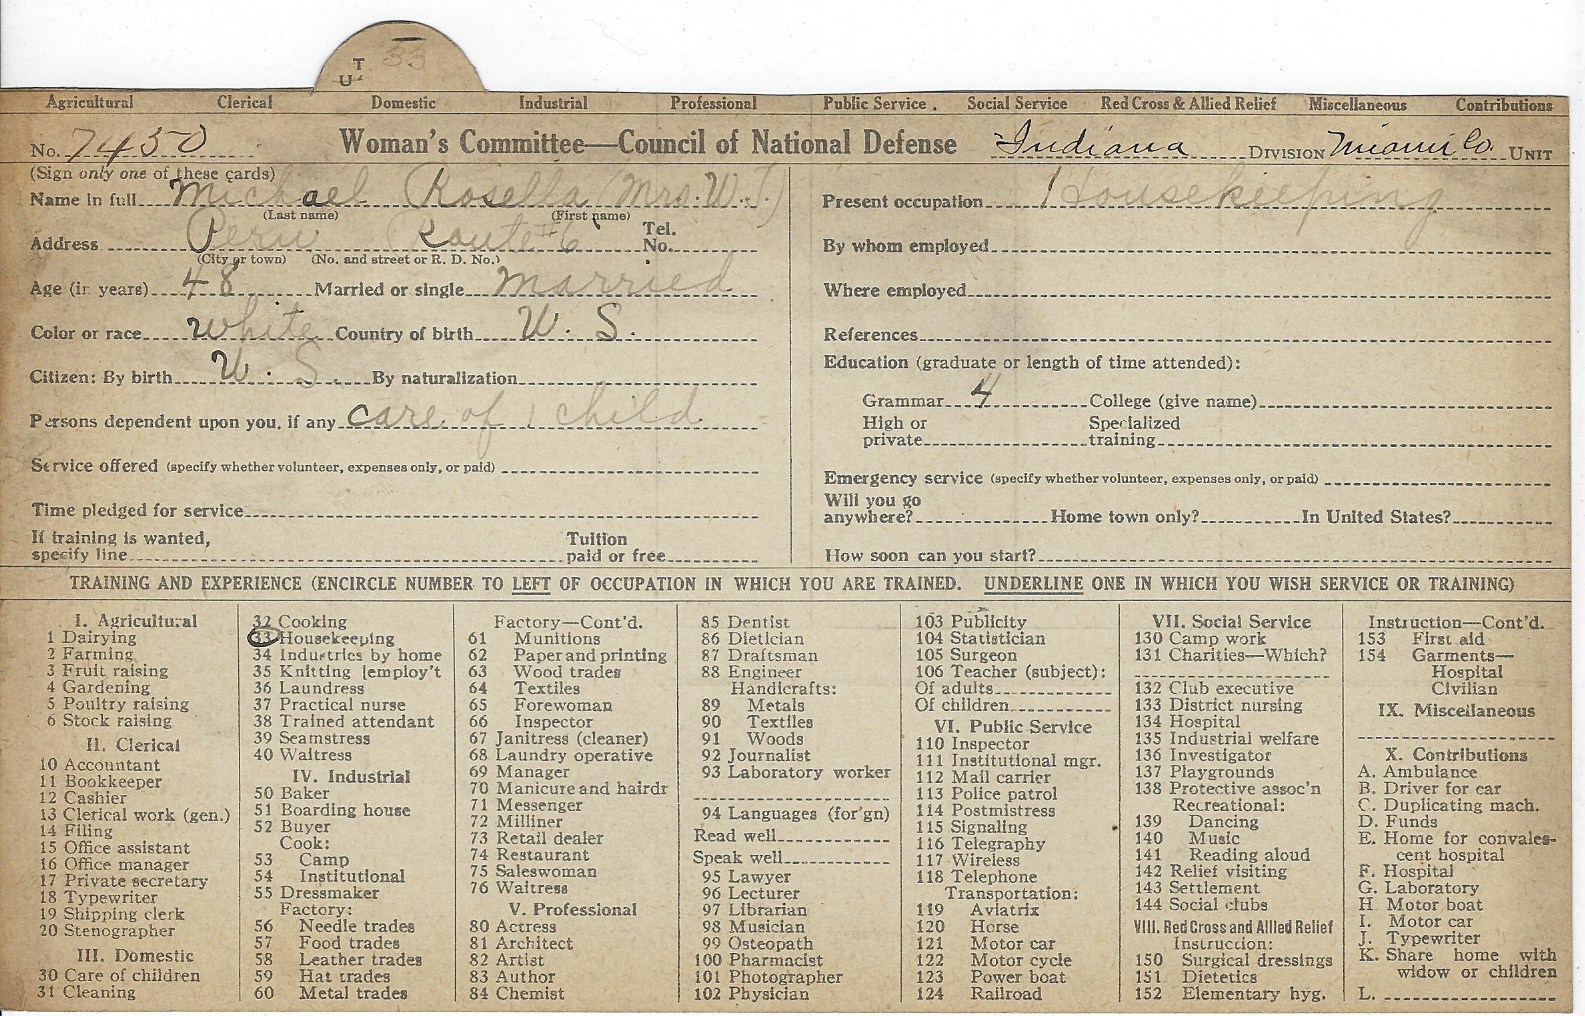 T 33
U
Agricultural Clerical Domestic Industrial Professional Public Service. Social Service Red Cross & Allied Relief Miscellaneous Contributions
No. 7450 Woman's Committee—Council of National Defense Indiana DIVISION Miami Co. UNIT
(Sign only one of these cards)
Name in full Michael Rosella (Mrs. W. T.)
(Last name) (First name)
Address Peru Route #6 Tel. No.
(City or town) (No. and street or R. D. No.)
Age (in years) 48 Married or single married
Color or race white Country of birth U. S.
Citizen: By birth U. S. By naturalization
Persons dependent upon you, if any care of 1 child
Service offered (specify whether volunteer, expenses only, or paid)
Time pledged for service
If training is wanted, Tuition
specify line paid or free
Present occupation Housekeeping
By whom employed
Where employed
References
Education (graduate or length of time attended):
Grammar 4 College (give name)
High or Specialized
private training
Emergency service (specify whether volunteer, expenses only, or paid)
Will you go
anywhere? Home town only? In United States?
How soon can you start?
TRAINING AND EXPERIENCE (ENCIRCLE NUMBER TO LEFT OF OCCUPATION IN WHICH YOU ARE TRAINED. UNDERLINE ONE IN WHICH YOU WISH SERVICE OR TRAINING)
I. Agricultural
1 Dairying
2 Farming
3 Fruit raising
4 Gardening
5 Poultry raising
6 Stock raising
II. Clerical
10 Accountant
11 Bookkeeper
12 Cashier
13 Clerical work (gen.)
14 Filing
15 Office assistant
16 Office manager
17 Private secretary
18 Typewriter
19 Shipping clerk
20 Stenographer
III. Domestic
30 Care of children
31 Cleaning
32 Cooking
33 Housekeeping
34 Industries by home
35 Knitting [employ't
36 Laundress
37 Practical nurse
38 Trained attendant
39 Seamstress
40 Waitress
IV. Industrial
50 Baker
51 Boarding house
52 Buyer
Cook:
53 Camp
54 Institutional
55 Dressmaker
Factory:
56 Needle trades
57 Food trades
58 Leather trades
59 Hat trades
60 Metal trades
Factory—Cont'd.
61 Munitions
62 Paper and printing
63 Wood trades
64 Textiles
65 Forewoman
66 Inspector
67 Janitress (cleaner)
68 Laundry operative
69 Manager
70 Manicure and hairdr
71 Messenger
72 Milliner
73 Retail dealer
74 Restaurant
75 Saleswoman
76 Waitress
V. Professional
80 Actress
81 Architect
82 Artist
83 Author
84 Chemist
85 Dentist
86 Dietician
87 Draftsman
88 Engineer
Handicrafts:
89 Metals
90 Textiles
91 Woods
92 Journalist
93 Laboratory worker
94 Languages (for'gn)
Read well
Speak well
95 Lawyer
96 Lecturer
97 Librarian
98 Musician
99 Osteopath
100 Pharmacist
101 Photographer
102 Physician
103 Publicity
104 Statistician
105 Surgeon
106 Teacher (subject):
Of adults
Of children
VI. Public Service
110 Inspector
111 Institutional mgr.
112 Mail carrier
113 Police patrol
114 Postmistress
115 Signaling
116 Telegraphy
117 Wireless
118 Telephone
Transportation:
119 Aviatrix
120 Horse
121 Motor car
122 Motor cycle
123 Power boat
124 Railroad
VII. Social Service
130 Camp work
131 Charities—Which?
132 Club executive
133 District nursing
134 Hospital
135 Industrial welfare
136 Investigator
137 Playgrounds
138 Protective assoc'n
Recreational:
139 Dancing
140 Music
141 Reading aloud
142 Relief visiting
143 Settlement
144 Social clubs
VIII. Red Cross and Allied Relief
Instruction:
150 Surgical dressings
151 Dietetics
152 Elementary hyg.
Instruction—Cont'd.
153 First aid
154 Garments—
Hospital
Civilian
IX. Miscellaneous
X. Contributions
A. Ambulance
B. Driver for car
C. Duplicating mach.
D. Funds
E. Home for convales-
cent hospital
F. Hospital
G. Laboratory
H. Motor boat
I. Motor car
J. Typewriter
K. Share home with
widow or children
L.